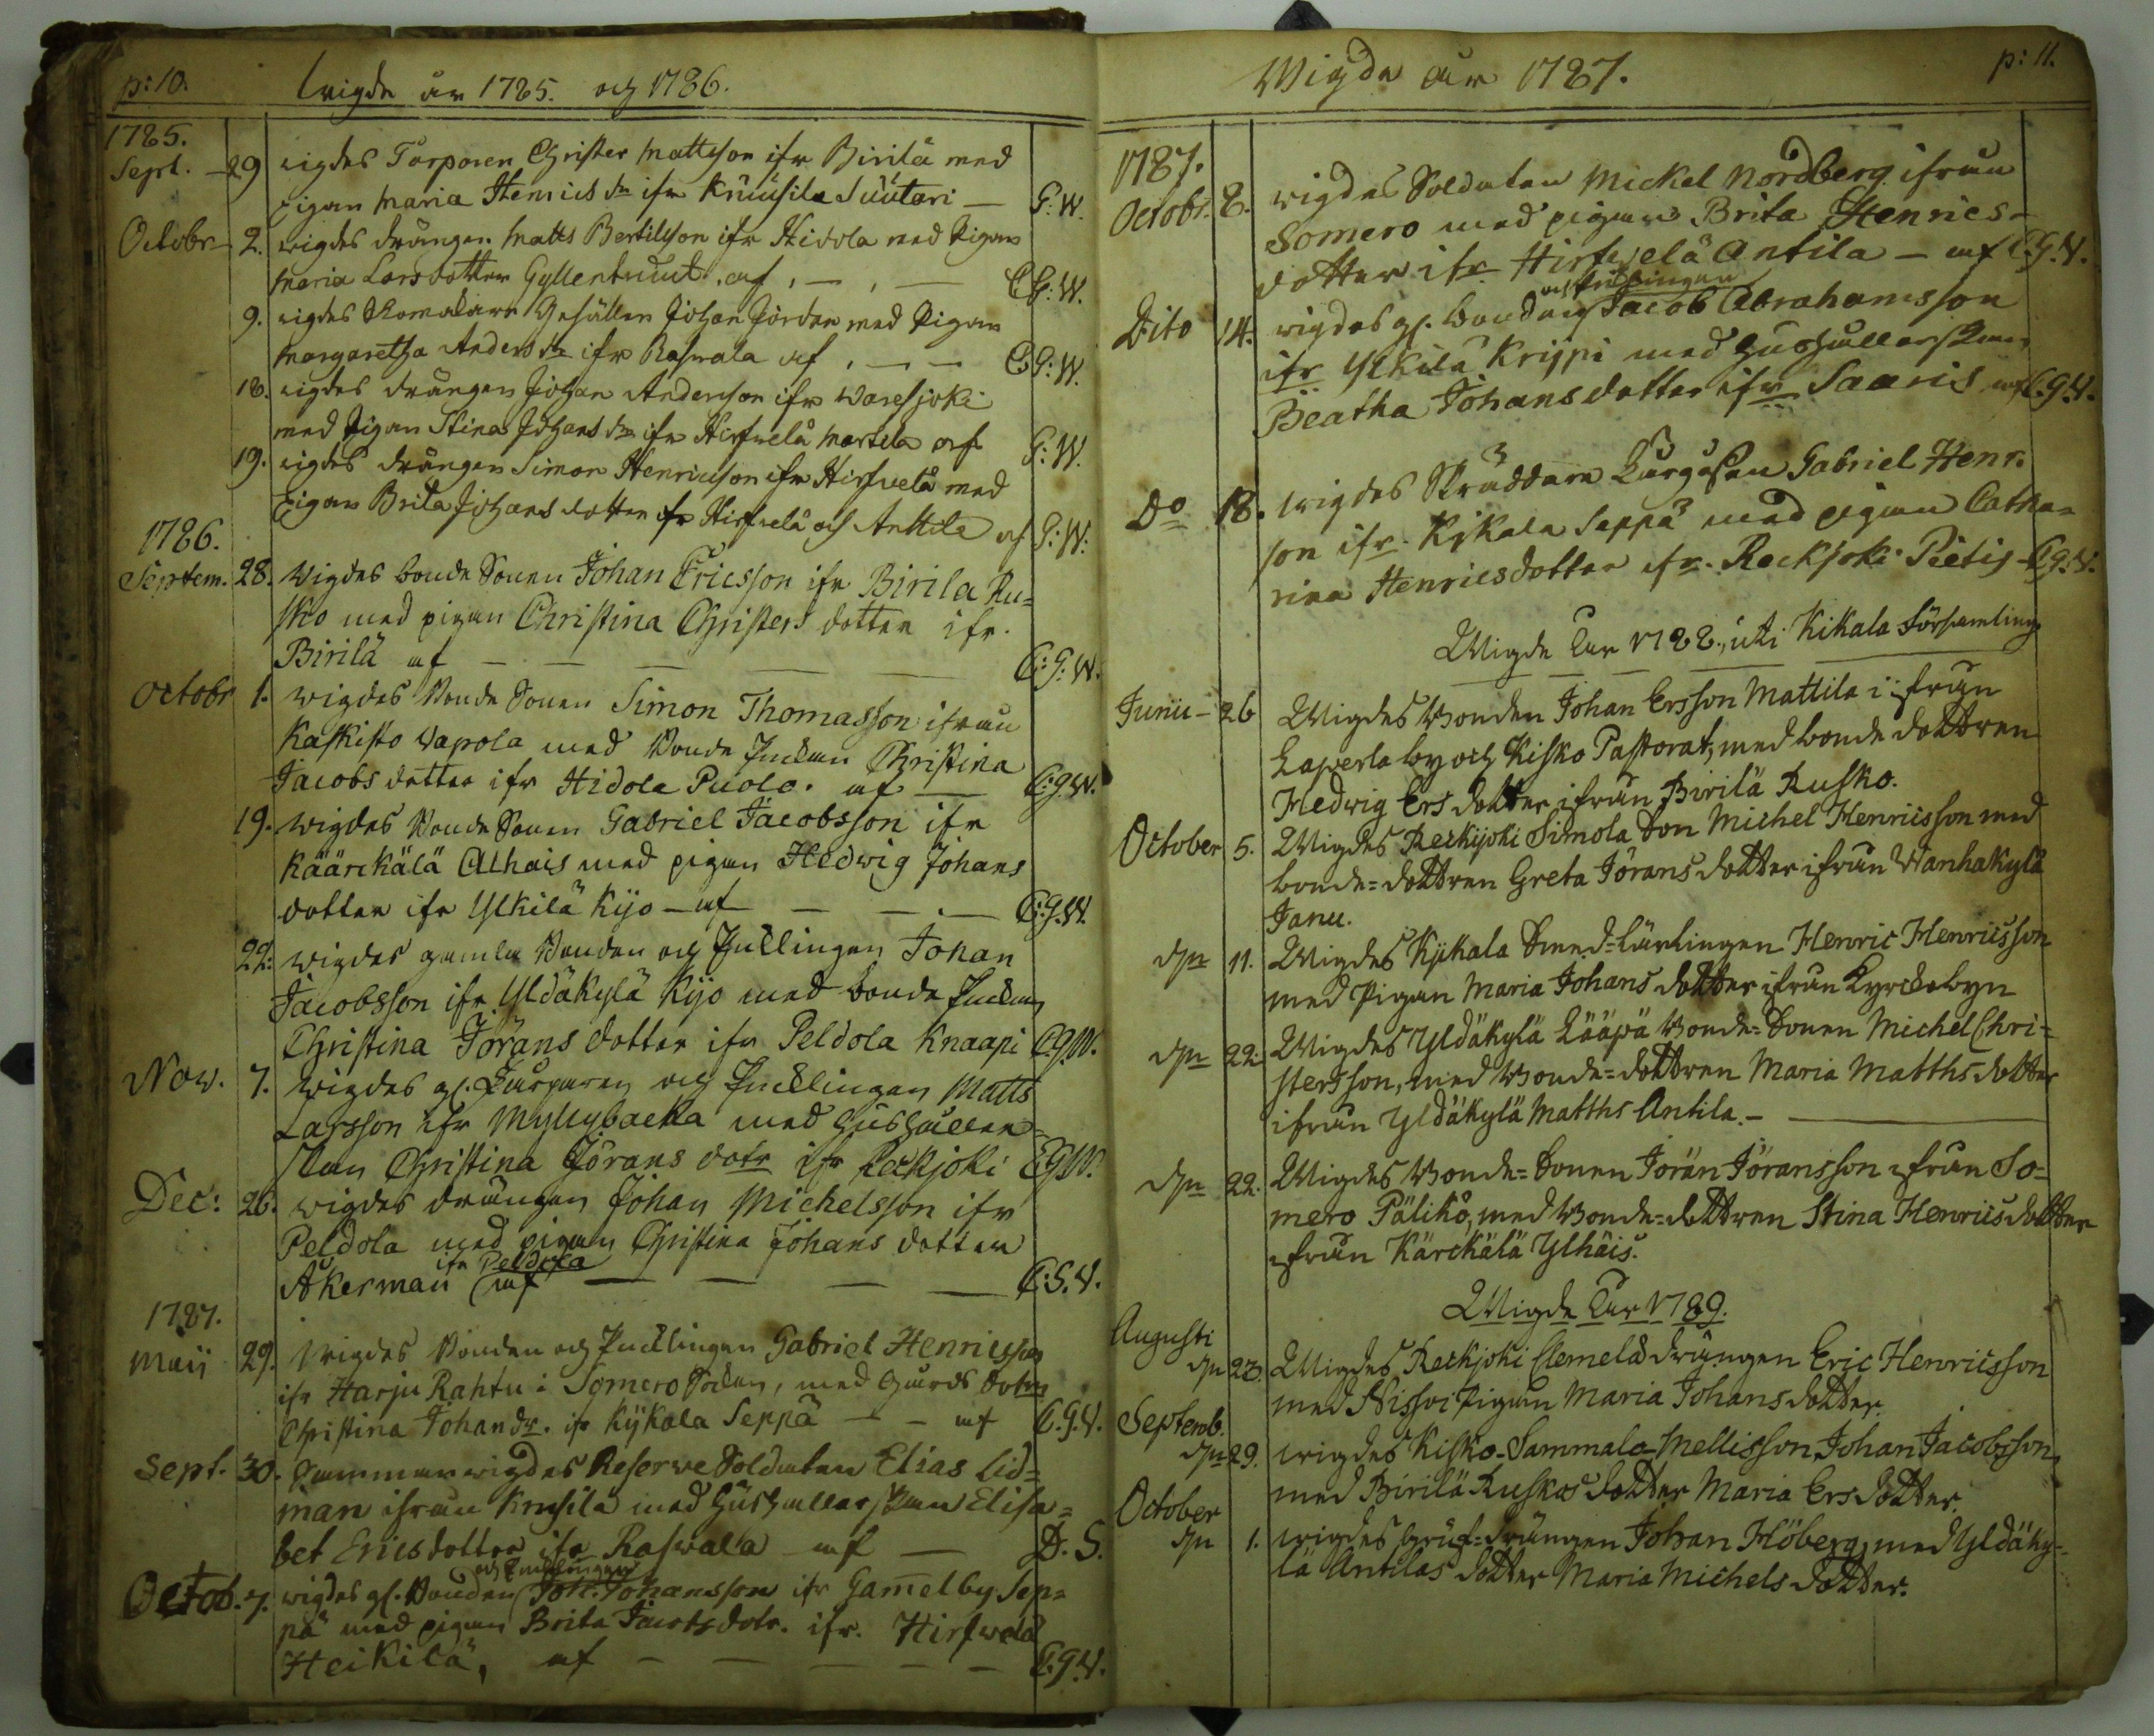 p: 10. Wigde år 1785. och 1786.
1785.
Sept. - 29 wigdes Torparen Christer Mattsson ifr Birilä med
Pigan Maria Henricsdr ifr Kruusila Suutari — G: W.
Octobr - 2. wigdes drängen Matts Bertilsson ifr Hidola med Pigan
Maria Larsdotter af — — C G: W.
9. wigdes Gesällen Johan Jordan med Pigan
Margaretha Andersdr ifr Raswala af — — C G: W.
18. wigdes drängen Johan Andersson ifr Waresjoki
med Pigan Stina Johansdr ifr Hirfwelä Martela af G: W.
19. wigdes drängen Simon Henricsson ifr Hirfwelä med
Pigan Brita Johans dotter ifr Hirfwelä och Anttila af G: W:
1786.
Septem. 28. Wigdes bonde Sonen Johan Ericsson ifr Birila Ru=
sko med pigan Christina Christers dotter ifr.
Birilä af — — — — C: G: W.
Octobr 1. wigdes Bonde Sonen Simon Thomasson ifrån
Kaskisto Wapola med Bonde Enckan Christina
Jacobs dotter ifr Hidola Puolo. af — C: g. W.
19. wigdes Bonde Sonen Gabriel Jacobsson ifr
Käärckälä Alhais med pigan Hedwig Johans
dotter ifr Ylkilä Kijo — af — — — C: G. W.
22: wigdes gamla Bonden och Encklingen Johan
Jacobsson ifr Yldäkylä Kijo med bonde Enckan
Christina Jörans dotter ifr Peldola Knaapi C. G. W.
Nov. 7. wigdes gl. Torparen och Encklingen Matts
Larsson ifr Myllybacka med Hushåller=
skan Christina Jörans dotr ifr Reckjoki C G W.
Dec: 26. wigdes drängen Johan Michelsson ifr
Peldola med pigan Christina Johans dotter
ifr Peldola
Åkerman af — — — — C: G. W.
1787.
Maij 29. Wigdes Bonden och Encklingen Gabriel Henricsson
ifr Harju Rahtu i Somero Soken, med Gårds dotren
Christina Johandr. ifr Kijkala Seppä — — af C. G. W.
Sept. 30. Sammanwigdes Reserve Soldaten Elias Lid=
man ifrån Krusila med Hushållerskan Elisa=
bet Ericsdotter ifr Raswala af — D. S.
och Encklingen
Octob. 7. wigdes gl. Bonden Joh: Johansson ifr Gamelby Sep=
pä med pigan Brita Jacobsdotr. ifr. Hirfwelä
Heikilä, af — — — — C. G. W.
Wigde år 1787. p: 11.
1787.
Octobr. 8. wigdes Soldaten Mickel Nordberg ifrån
Somero med pigan Brita Henrics-
dotter ifr Hirfwelä Antila — af C. G. W.
och Encklingen
Dito 14. wigdes gl. bonden Jacob Abrahamsson
ifr Ylkilä Krijpi med Hushållerskan
Beatha Johansdotter ifr Saaris af C. G. W.
Do 18. wigdes Skräddare Gabriel Henr.
son ifr. Kijkala Seppä med pigan Catha=
rina Henricsdotter ifr. Reckjoki Pietis - C. g. W.
Wigde Åhr 1788. uti Kikala Församling
Junii - 26 Wigdes Bonden Johan Ersson Mattila ifrån
Laperla by och Kisko Pastorat, med bonde dottren
Hedwig Ers dotter ifrån Birilä Rusko.
October 5. Wigdes Reckijoki Simola Son Michel Henricsson med
bonde=dottren Greta Jörans dotter ifrån Wanhakylä
Janu.
dn 11. Wigdes Kijkala Smed=Lärlingen Henric Henricsson
med Pigan Maria Johans dotter ifrån Kyrckobyn
dn 22. Wigdes Yldäkylä Lääpä Bonde=Sonen Michel Chri=
stersson, med Bonde=dottren Maria Matths dotter
ifrån Yldäkylä Matths Antila. —
dn 22. Wigdes Bonde=Sonen Jören Göransson ifrån So=
mero Pälikö, med Bonde=dottren Stina Henricsdotter
ifrån Kärckälä Ylhäis.
Wigde Åhr 1789.
Augusti
dn 23. Wigdes Reckjoki Clemelä drängen Eric Henricsson
med Nissoi Pigan Maria Johans dotter.
Septemb.
dn 29. wigdes Kisko-Sammalo-Mellisson Johan Jacobsson,
med Birilä Ruskos dotter Maria Ers dotter.
October
dn 1. wigdes Gruf=drängen Johan Höberg, med Yldäky=
lä Antilas dotter Maria Michels dotter.